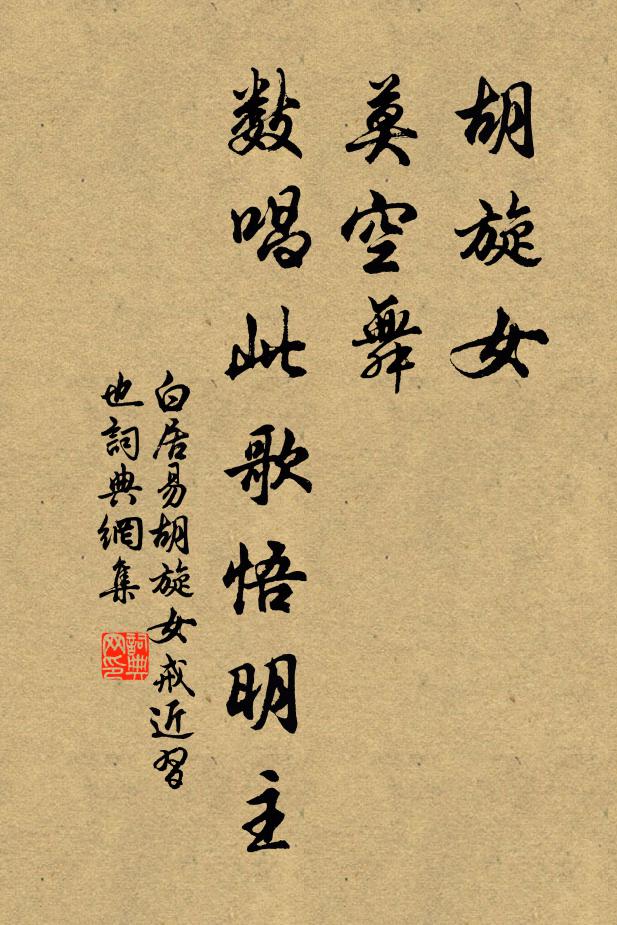 胡旋女
莫空舞
數唱此歌悟明主
白居易胡旋女戒近習
也詞典網集
詞典
网印